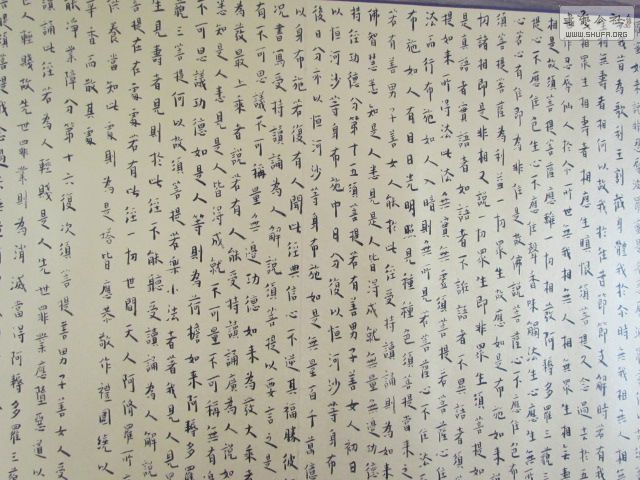 我昔為歌利王割截身體我於尒時無我相無人相無
無壽者相何以故我於往昔節節支解時若有我
相眾生相壽者相應生瞋恨須菩提又念過去於五
作忍辱仙人於尒所世無我相無人相無眾生相無
相是故須菩提菩薩應離一切相發阿耨多羅三藐三
提心不應住色生心不應住聲香味觸法生心應生無
心若心有住即為非住是故佛說菩薩心不應住色布
須菩提菩薩為利益一切眾生故應如是布施如來說一
切諸相即是非相又說一切眾生即非眾生須菩提如
是真語者實語者如語者不誑語者不異語者須
提如來所得法此法無實無虛須菩提若菩薩心住
法而行布施如人入闇則無所見若菩薩心不住法
布施如人有目日光明照見種種色須菩提當來之
若有善男子善女人能於此經受持讀誦則為如來以
佛智慧悉知是人悉見是人皆得成就無量無邊功德
持經功德分第十五須菩提若有善男子善女人初日
以恒河沙等身布施中日分復以恒河沙等身布
後日分亦以恒河沙等身布施如是無量百千萬億
以身布施若復有人聞此經典信心不逆其福勝彼
況書寫受持讀誦為人解說須菩提以要言之是
有不可思議不可稱量無邊功德如來為發大乘
為發最上乘者說若有人能受持讀誦廣為人說如
來悉知是人悉見是人皆得成就不可量不可稱無有
不可思議功德如是人等則為荷擔如來阿耨多羅
藐三菩提何以故須菩提若樂小法者著我見人見
壽者見則於此經不能聽受讀誦為人解說
菩提在在處處若有此經一切世間天人阿脩羅所
供養當知此處則為是塔皆應恭敬作禮圍繞以
華香而散其處
能淨業障分第十六復次須菩提善男子善女人受
讀誦此經若為人輕賤是人先世罪業應墮惡道以
人輕賤故先世罪業則為消滅當得阿耨多羅三
WWW.SHUFA.ORG